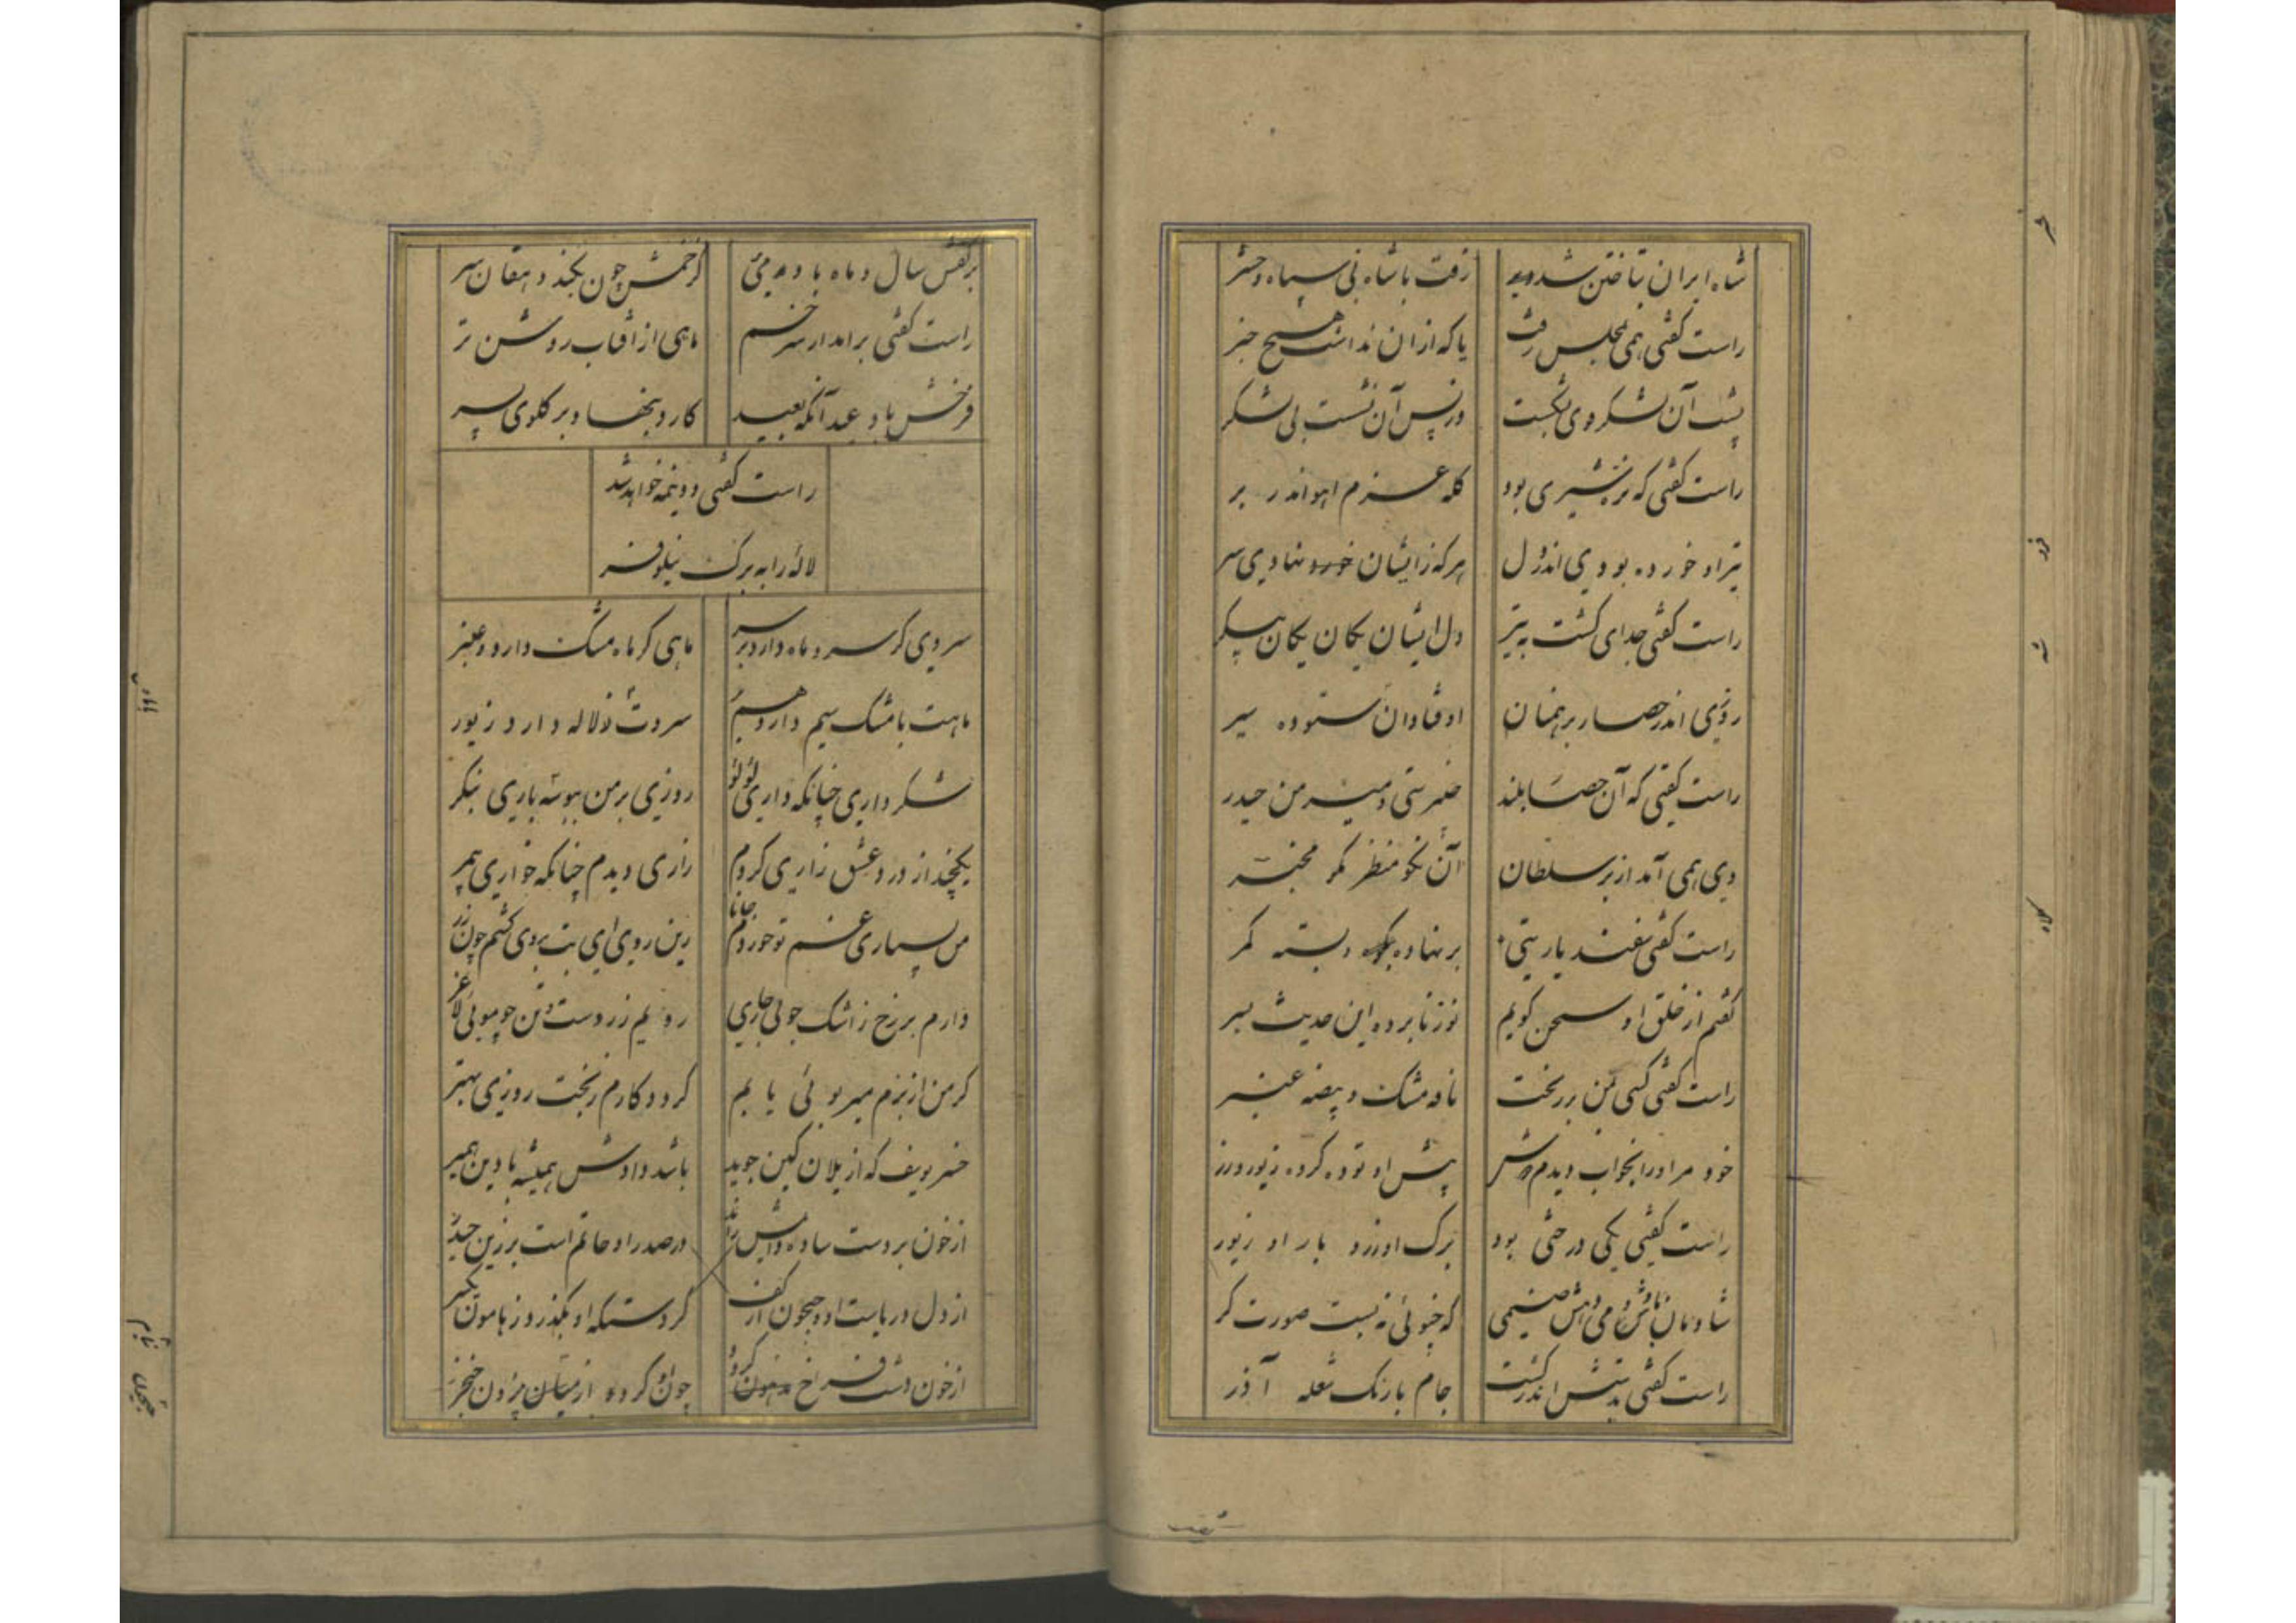 شاه ایران بتاختن شد رفت با شاه نی سپاه و حشر
راست گفتی همی بمجلس رفت یا که ازان نداشت هیچ خبر
پشت آن لشکر قوی بشکست ورپس آن نشست بی لشکر
راست گفتی که نره شیری بود گله غرم اهو اندر بر
تیر او خورده بودی اندر دل هرکه زایشان نهادی سر
راست گفتی جدای گشت به تیر دل ایشان یکان یکان پیکر
روزی اندر حصار برهمنان اوفتادان ستوده سیر
راست گفتی که آن حصار بلند خیبرستی و میر من حیدر
دی همی آمد از بر سلطان آن نکو منظر نکو مخبر
راست گفتی سفندیارستی بر نهاده و بسته کمر
گفتم از خلق او سخن گویم نوز نابرده این حدیث بسر
راست گفتی کسی بمن بر ریخت نافه مشک و بیضه عنبر
خود مر او را بخواب دیدم دوش پیش او توده کرده زیور و زر
راست گفتی یکی درختی بود برک او زر و بار او زیور
شادمان باش و می دهش صنمی که چنوئی نه بست صورت کر
راست گفتی بدستش اندر گشت جام با رنک شعله آذر
برکفش سال و ماه باده می کز خمش چون بکند دهقان سر
راست گفتی برامد از سر خم ماهی از افتاب روشن تر
فرخش باد عید آنکه بعید کارد بنهاد بر گلوی پسر
راست گفتی دونیمه خواهد شد
لاله را به برک نیلوفر
سروی کر سرو ماه دارد بر سر ماهی کر ماه مشک دارد و عنبر
ماهت با مشک سیم دارد همبر سروت زلاله دارد زیور
شکر داری چنانکه داری لؤلؤ روزی بر من ببوسه باری بنکر
یکچند از درد عشق زاری کردم زاری دیدم چنانکه خواری همبر
من بسیاری غم تو خوردم جانا زین روی ای بت بروی گشتم چون زر
دارم بر رخ زاشک جوئی جاری رویم زردست و تن چو موئی لاغر
کر من از بزم میر بوئی یابم کردد کارم زبخت روزی بهتر
میر یوسف که از یلان کین جوید باشد دادش همیشه با دین همبر
از خون بر دست ساده دانش راند در صدر او حاتم است بر زین حیدر
از دل دریاست او و جیحون از کف کر دستکه او بگذرد زهامون یکسر
از خون دشت فراخ کردد چون او کرده از میان برون خنجر